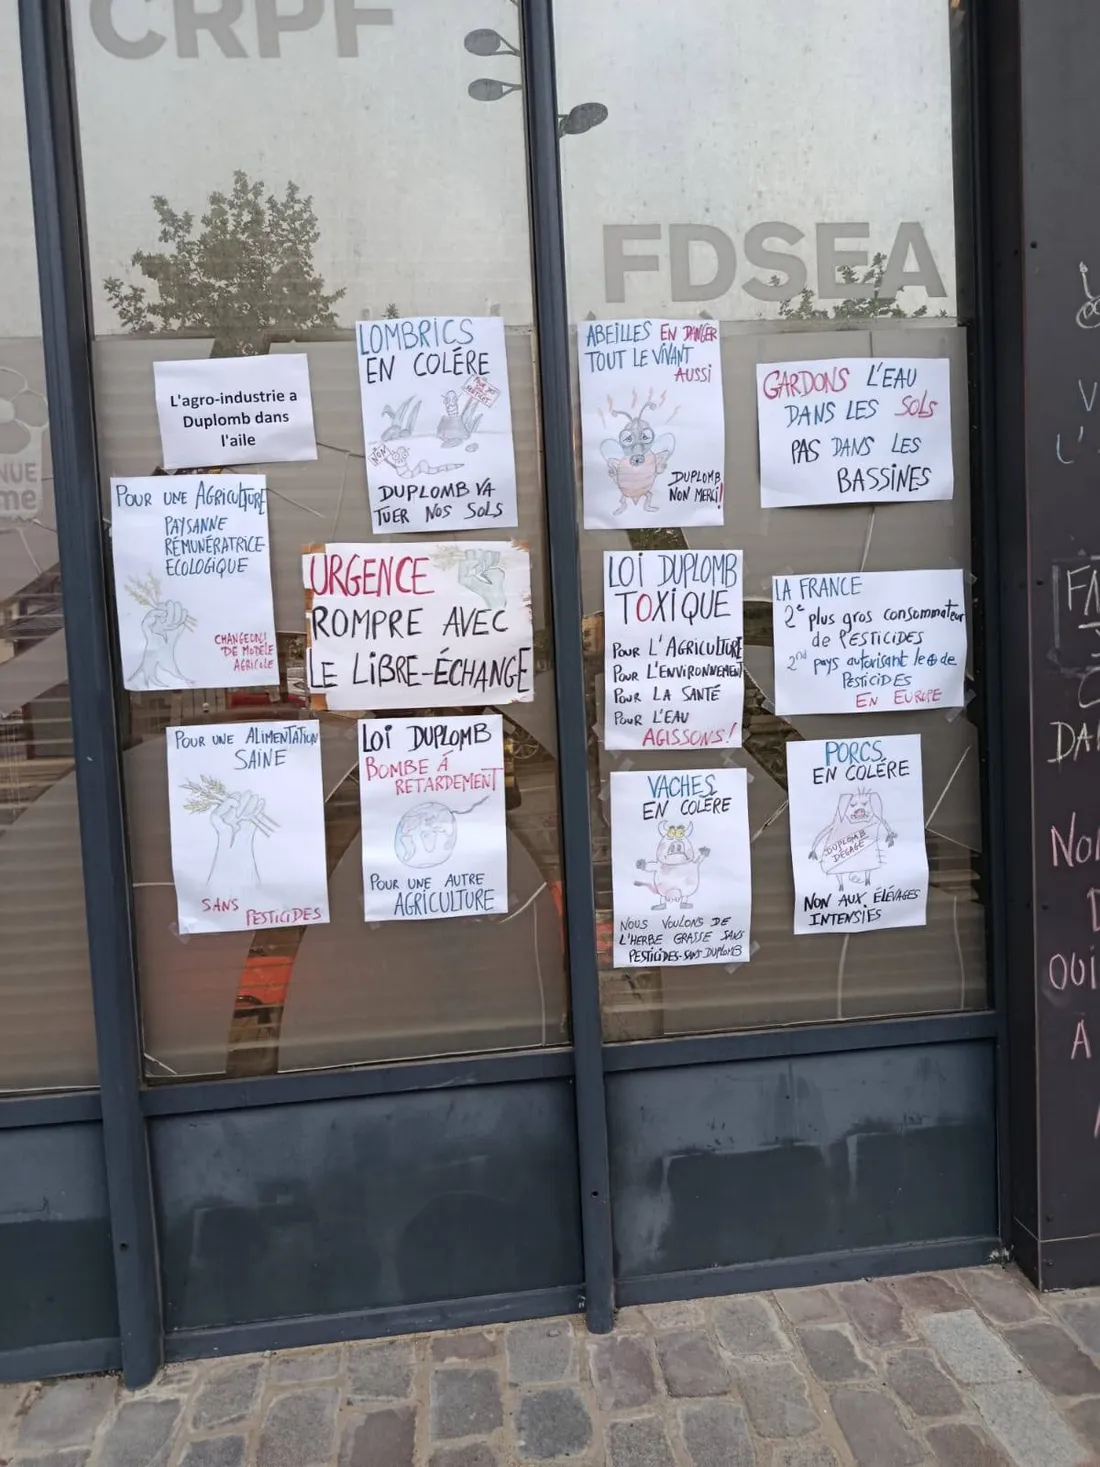 CRPF
FDSEA
NUE
me
L'agro-industrie a
Duplomb dans
l'aile
LOMBRICS
EN COLÉRE
NON
DUPLOMB VA
TUER NOS SOLS
ABEILLES EN DANGER
TOUT LE VIVANT
AUSSI
DUPLOMB
NON MERCI!
GARDONS L'EAU
DANS LES SOLS
PAS DANS LES
BASSINES
POUR UNE AGRICULTURE
PAYSANNE
RÉMUNÉRATRICE
ÉCOLOGIQUE
CHANGEONS
DE MODÈLE
AGRICOLE
URGENCE
ROMPRE AVEC
LE LIBRE-ÉCHANGE
LOI DUPLOMB
TOXIQUE
POUR L'AGRICULTURE
POUR L'ENVIRONNEMENT
POUR LA SANTÉ
POUR L'EAU
AGISSONS!
LA FRANCE
2e plus gros consommateur
de PESTICIDES
2nd pays autorisant le ⊕ de
PESTICIDES
EN EUROPE
POUR UNE ALIMENTATION
SAINE
SANS PESTICIDES
LOI DUPLOMB
BOMBE À
RETARDEMENT
POUR UNE AUTRE
AGRICULTURE
VACHES
EN COLÈRE
NOUS VOULONS DE
L'HERBE GRASSE SANS
PESTICIDES-SANS DUPLOMB
PORCS
EN COLÈRE
DUPLOMB
DÉGAGE
NON AUX ÉLEVAGES
INTENSIFS
OUI
A